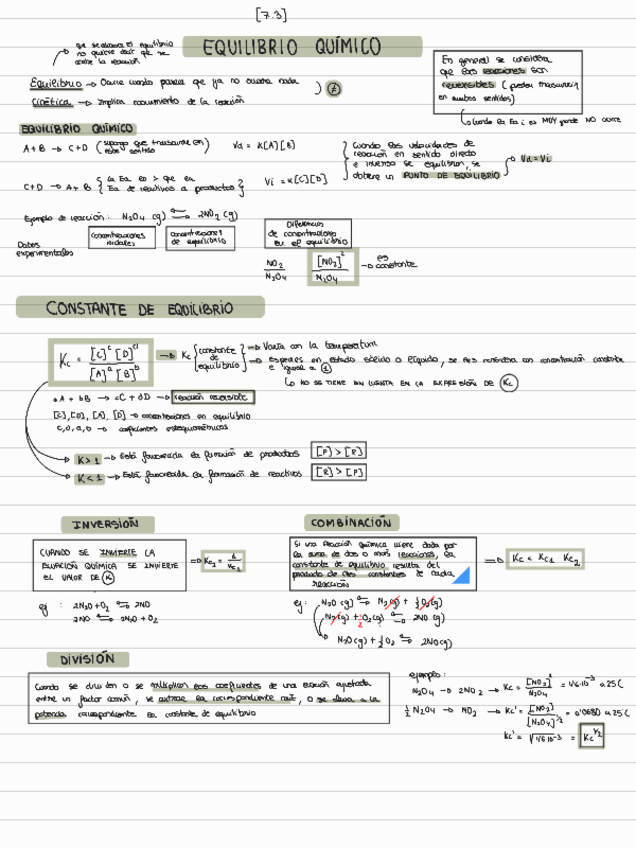 [7.3]
EQUILIBRIO QUÍMICO
que se alcance el equilibrio
no quiere decir que se
acabe la reacción
Equilibrio → Ocurre cuando parece que ya no sucede nada
Cinética → Implica movimiento de la reacción
≠
En general se considera
que las reacciones son
reversibles (pueden transcurrir
en ambos sentidos)
Cuando la Ea i es MUY grande NO ocurre
EQUILIBRIO QUÍMICO
A + B → C + D (supongo que transcurre en este sentido) Vd = K[A][B]
C + D → A + B { la Ea es > que en Ea de reactivos a productos } Vi = K[C][D]
Cuando las velocidades de
reacción en sentido directo
e inverso se equilibran, se
obtiene un PUNTO DE EQUILIBRIO
Vd = Vi
Ejemplo de reacción: N2O4 (g) ⇌ 2NO2 (g)
Datos
experimentales
Concentraciones
iniciales
Concentraciones
de equilibrio
Diferencias
de concentraciones
en el equilibrio
NO2 / N2O4
[NO2]² / N2O4 → es constante
CONSTANTE DE EQUILIBRIO
Kc = [C]^c [D]^d / [A]^a [B]^b → Kc { constante de equilibrio }
→ Varía con la temperatura
→ Especies en estado sólido o líquido, se les considera con concentración constante
e igual a 1
↳ NO SE TIENE EN CUENTA EN LA EXPRESIÓN DE Kc
aA + bB → cC + dD → reacción reversible
[C], [D], [A], [B] → concentraciones en equilibrio
c, d, a, b → coeficientes estequiométricos
K > 1 → Está favorecida la formación de productos [P] > [R]
K < 1 → Está favorecida la formación de reactivos [R] > [P]
INVERSIÓN
CUANDO SE INVIERTE LA
ECUACIÓN QUÍMICA SE INVIERTE
EL VALOR DE K
⇒ Kc2 = 1 / Kc1
ej : 2NO + O2 ⇌ 2NO
2NO ⇌ 2NO + O2
COMBINACIÓN
Si una reacción química viene dada por
la suma de dos o más reacciones, la
constante de equilibrio resulta del
producto de las constantes de cada
reacción
⇒ Kc = Kc1 Kc2
ej: N2O (g) ⇌ N2(g) + ½ O2(g)
N2(g) + ½ O2(g) ⇌ 2NO (g)
N2O (g) + ½ O2 ⇌ 2NO (g)
DIVISIÓN
Cuando se dividen o se multiplican los coeficientes de una ecuación ajustada
entre un factor común, se extrae la correspondiente raíz, o se eleva a la
potencia correspondiente la constante de equilibrio
ejemplo:
N2O4 → 2NO2 → Kc = [NO2]² / N2O4 = 4'6·10⁻³ a 25°C
½ N2O4 → NO2 → Kc' = [NO2] / [N2O4]^½ = 0'0680 a 25°C
Kc' = √4'6·10⁻³ = Kc^½